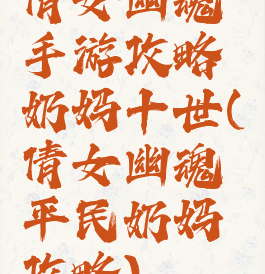 倩女幽魂
手游攻略
奶妈十世(
倩女幽魂
平民奶妈
攻略)